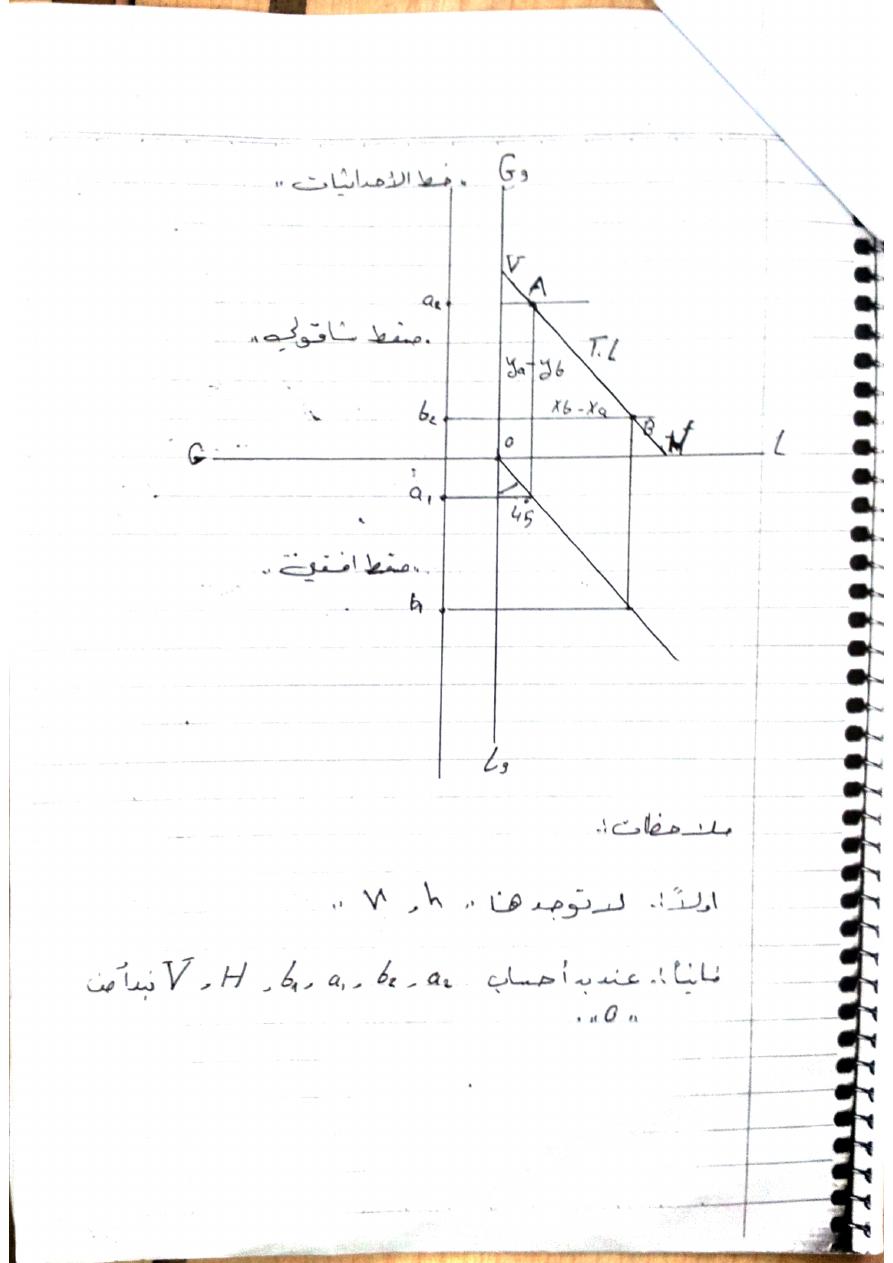 "خط الأحداثيات" G₃
V
A
a₂
T.L
"مسقط شاقولي"
ya - yb
b₂ xb - xa
B H
G o L
a₁
45
"مسقط افقي"
b₁
L₃
ملاحظات:.
اولاً:. لا توجد هنا "h, v"
ثانياً:. عند بدأ حساب a₂, b₂, a₁, b₁, H, V نبدأ من
"0".